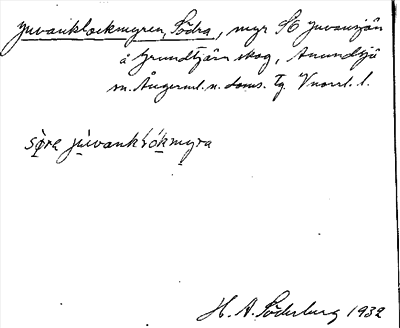 Juvanklockmyren, Södra, myr SO Juvansjön
å Grundtjärn skog, Anundsjö
sn. Ångerml. n. doms. tg. Vnorrl. l.
söra juvanklokmyra
H. A. Söderberg 1932